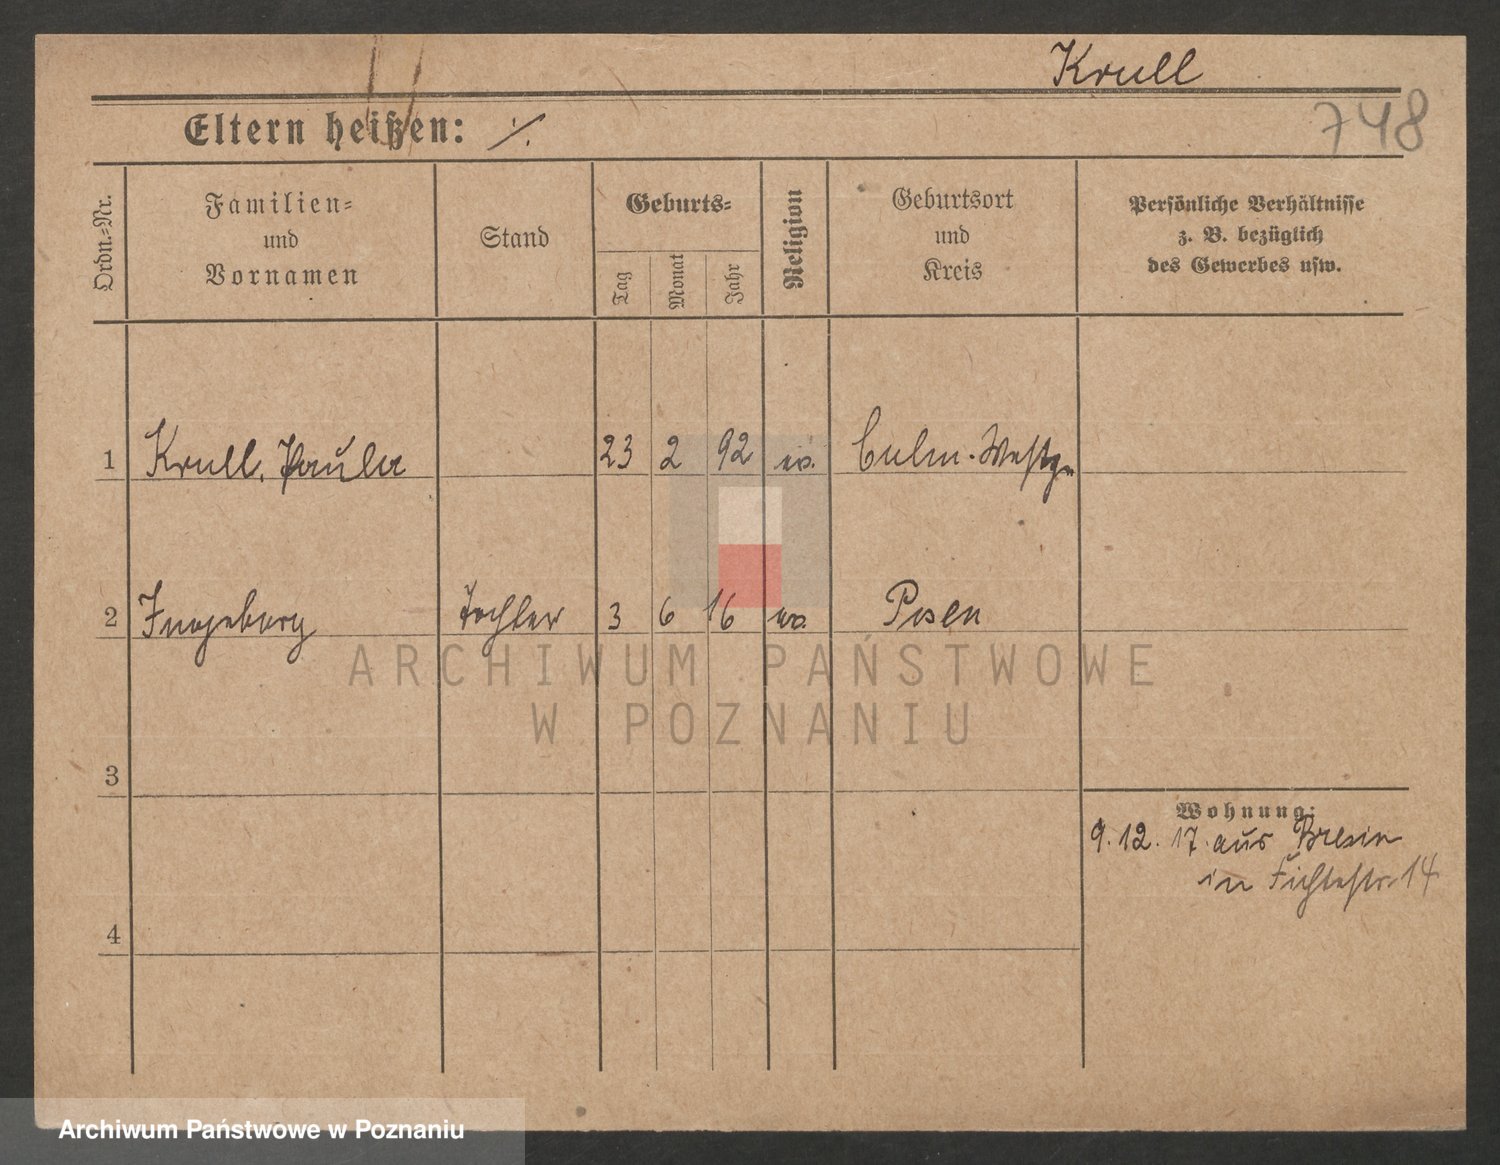 Krull
748
Eltern heißen: ⁒
Ordn.=Nr.
Familien=
und
Vornamen
Stand
Geburts=
Tag
Monat
Jahr
Religion
Geburtsort
und
Kreis
Persönliche Verhältnisse
z. B. bezüglich
des Gewerbes usw.
1 Krull, Paula 23 2 92 ev. Culm. Westpr
2 Ingeborg Tochter 3 6 16 ev. Posen
ARCHIWUM PAŃSTWOWE
W POZNANIU
3
Wohnung:
9. 12. 17. aus
in Fichtestr. 14
4
Archiwum Państwowe w Poznaniu